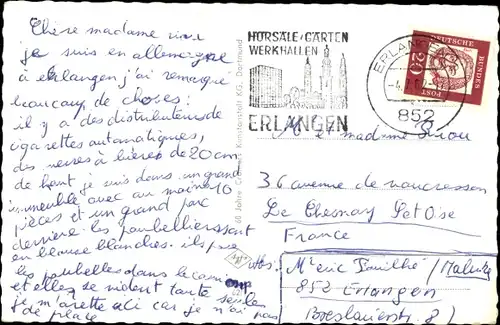 Chère madame riou
je suis en allemagne
à erlangen j'ai remarqué
beaucoup de choses:
il y a des distributeurs de
cigarettes automatiques,
des verres à bières de 20cm
de haut je suis dans un grand
immeuble avec au moins 10
pièces et un grand parc
derrière les poubelliers sont
en blouse blanches. ils
les poubelles dans le camion
et elles se vident toute seules
je m'arette ici car je n'ai pas
de place
HÖRSÄLE/GÄRTEN
WERKHALLEN
ERLANGEN
ERLANGEN
852
DEUTSCHE
BUNDES
POST
20
60 Jahre Kunstanstalt KG. Dortmund
M. e madame Riou
36 avenue de vaucresson
Le Chesnay Set Oise
France
Abs:
Mr eric /
852 Erlangen
Breslauerstr. 8